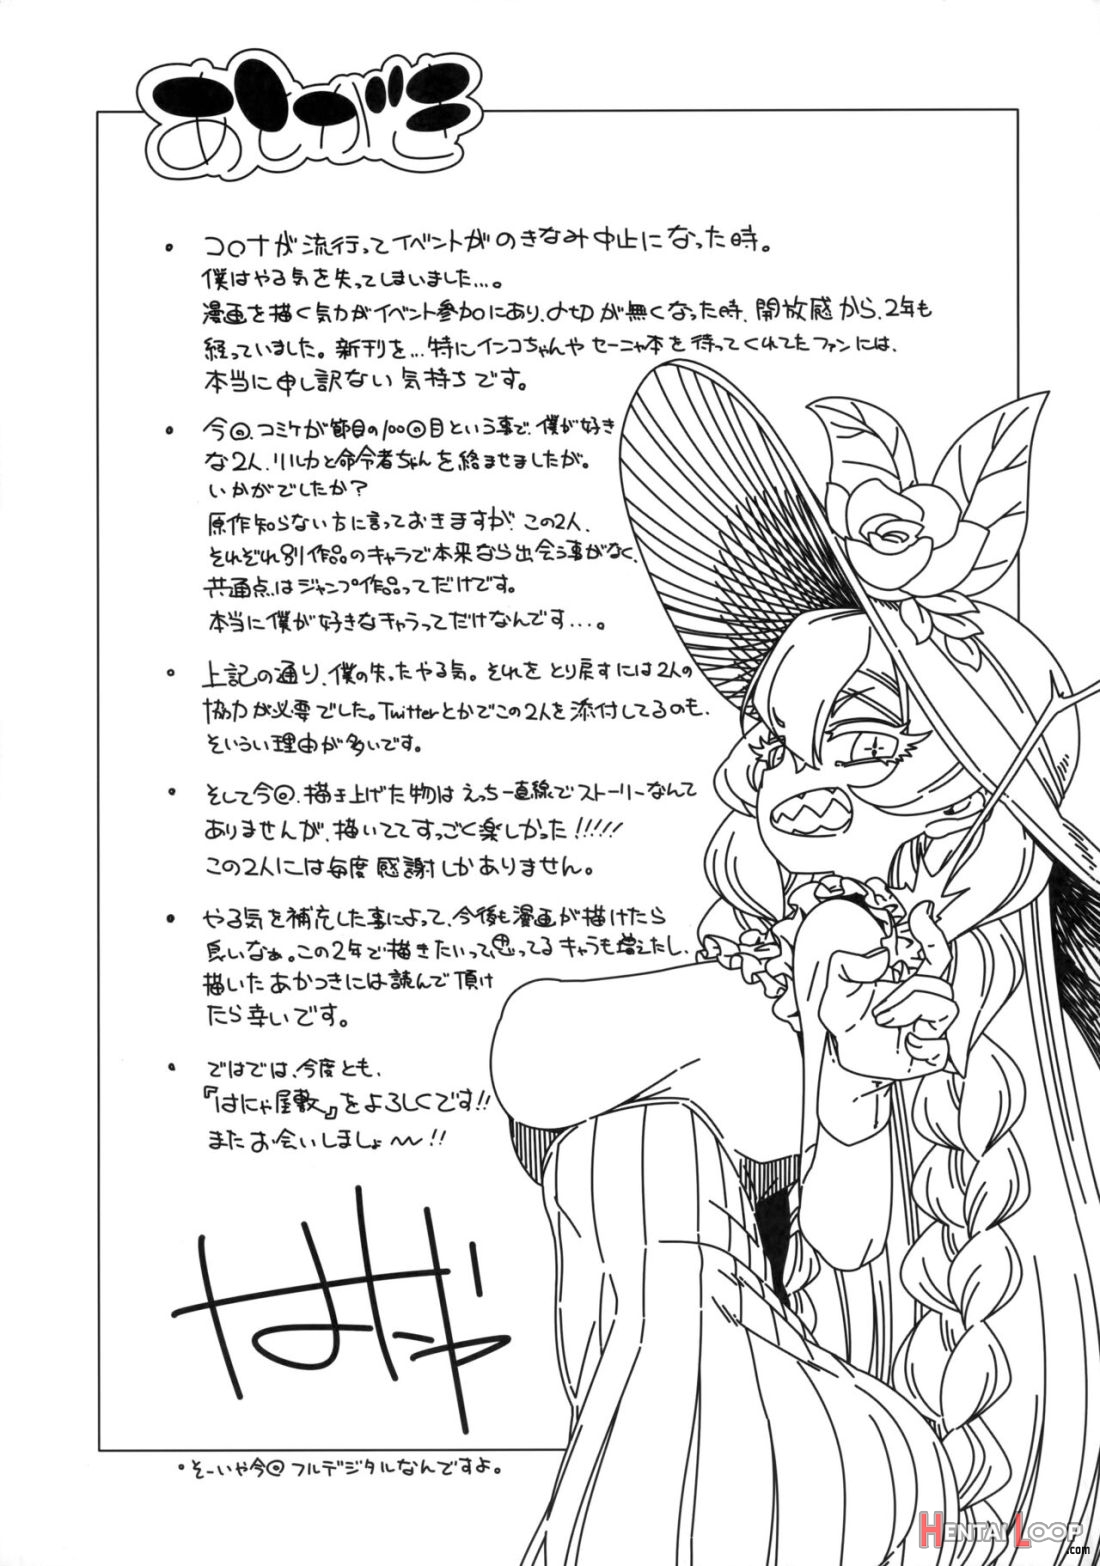 あとがき
・コロナが流行ってイベントがのきなみ中止になった時。
僕はやる気を失ってしまいました…。
漫画を描く気力がイベント参加にあり、〆切が無くなった時、開放感から、2年も
経っていました。新刊を…特にインコちゃんや セーニャ本を待ってくれてたファンには、
本当に申し訳ない気持ちです。
・今回、コミケが節目の100回目という事で、僕が好き
な2人、リルカと命令者ちゃんを絡ませましたが。
いかがでしたか?
原作知らない方に言っておきますが、この2人、
それぞれ別作品のキャラで本来なら出会う事がなく、
共通点はジャンプ作品ってだけです。
本当に僕が好きなキャラってだけなんです…。
・上記の通り、僕の失ったやる気。それをとり戻すには2人の
協力が必要でした。Twitterとかでこの2人を添付してるのも、
そういうい理由が多いです。
・そして今回、描き上げた物はえっち一直線でストーリーなんて
ありませんが、描いててすっごく楽しかった!!!!!
この2人には毎度感謝しかありません。
・やる気を補充した事によって、今後も漫画が描けたら
良いなぁ。この2年で描きたいって思ってるキャラも増えたし、
描いたあかつきには読んで頂け
たら幸いです。
・ではでは、今度とも、
『はにゃ屋敷』をよろしくです!!
またお会いしましょ〜〜!!
・そーいや今回フルデジタルなんですよ。
HENTAI LOOP
.com